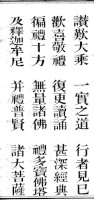 讚歎大乘 一實之道 行者見已
歡喜敬禮 復更讀誦 甚深經典
徧禮十方 無量諸佛 禮多寶佛塔
及釋迦牟尼 并禮普賢 諸大菩薩